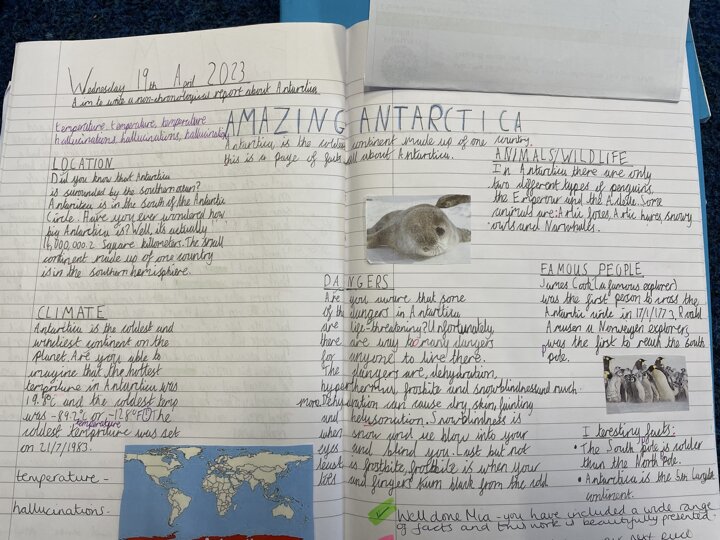 Wednesday 19th April 2023
Aim to write a non-chronological report about Antartica
temperature, temperature, temperature
hallucinations, hallucinations, hallucinations
AMAZING ANTARCTICA
Antarctica is the coldest continent made up of one country.
this is a page of facts all about Antarctica.
LOCATION
Did you know that Antartica
is surrounded by the southern ocean?
Antarctica is in the south of the Antartic
Circle. Have you ever wondered how
big Antarctica is? Well, its actually
16,000,000.2 Square killometers. The small
continent made up of one country
is in the southern hemisphere.
CLIMATE
Antarctica is the coldest and
windiest continent on the
planet. Are you able to
imagine that the hottest
temprture in Antarctica was
19.8°C and the coldest temp
was -89.2°C or -128°F? The
temperature
coldest temprture was set
on 21/7/1983.
temperature -
hallucinations -
DANGERS
Are you aware that some
of the dangers in Antarctica
are life-threatening? Unfortunately
there are way to many dangers
for anyone to live there.
The dangers are, dehydration,
hyperthermia, frostbite and snowblindness and much
more. Dehydration can cause dry skin, fainting
and helusonation. Snowblindness is
when snow and ice blow into your
eyes and blind you. Last but not
least is frostbite, frostbite is when your
toes and fingers turn black from the cold
ANIMALS/WILDLIFE
In Antartica there are only
two different types of penguins,
the Emperour and the Adelie. Some
animals are: Artic foxes, Artic hares, snowy
owls and Narwhals.
FAMOUS PEOPLE
James Cook (a famous explorer)
was the first person to cross the
Antartic circle in 17/1/1773, Roald
Amusen a Norwegen explorer,
was the first to reach the south
pole.
Interesting facts:
• The South Pole is colder
than the North Pole.
• Antarctica is the 5th largest
continent.
Well done Mia - you have included a wide range
of facts and this work is beautifully presented.